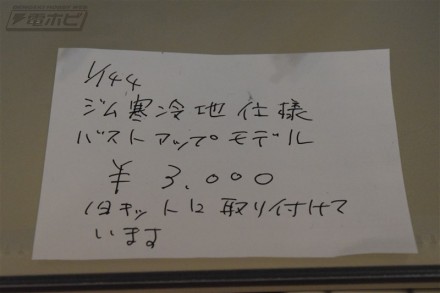 電ホビ
1/144
ジム寒冷地仕様
バストアップモデル
¥ 3.000
旧キットに取り付けて
います